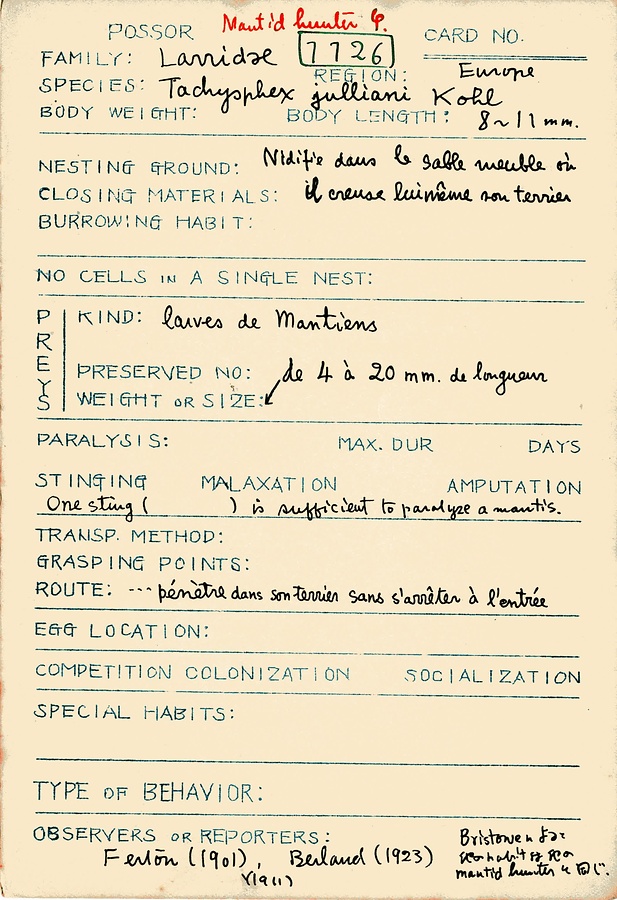 POSSOR Mantid hunter 4. CARD NO.
FAMILY: Larridae 7726
REGION: Europe
SPECIES: Tachysphex julliani Kohl
BODY WEIGHT: BODY LENGTH: 8~11 mm.
NESTING GROUND: Nidifie dans le sable meuble où
CLOSING MATERIALS: il creuse luimême son terrier
BURROWING HABIT:
NO CELLS IN A SINGLE NEST:
PREYS
KIND: larves de Mantiens
PRESERVED NO: de 4 à 20 mm. de longueur
WEIGHT OR SIZE:
PARALYSIS: MAX. DUR DAYS
STINGING MALAXATION AMPUTATION
One sting ( ) is sufficient to paralyze a mantis.
TRANSP. METHOD:
GRASPING POINTS:
ROUTE: --- pénètre dans son terrier sans s'arrêter à l'entrée
EGG LOCATION:
COMPETITION COLONIZATION SOCIALIZATION
SPECIAL HABITS:
TYPE OF BEHAVIOR:
OBSERVERS OR REPORTERS:
Ferton (1901), Berland (1923)
(1911)
mantid hunter